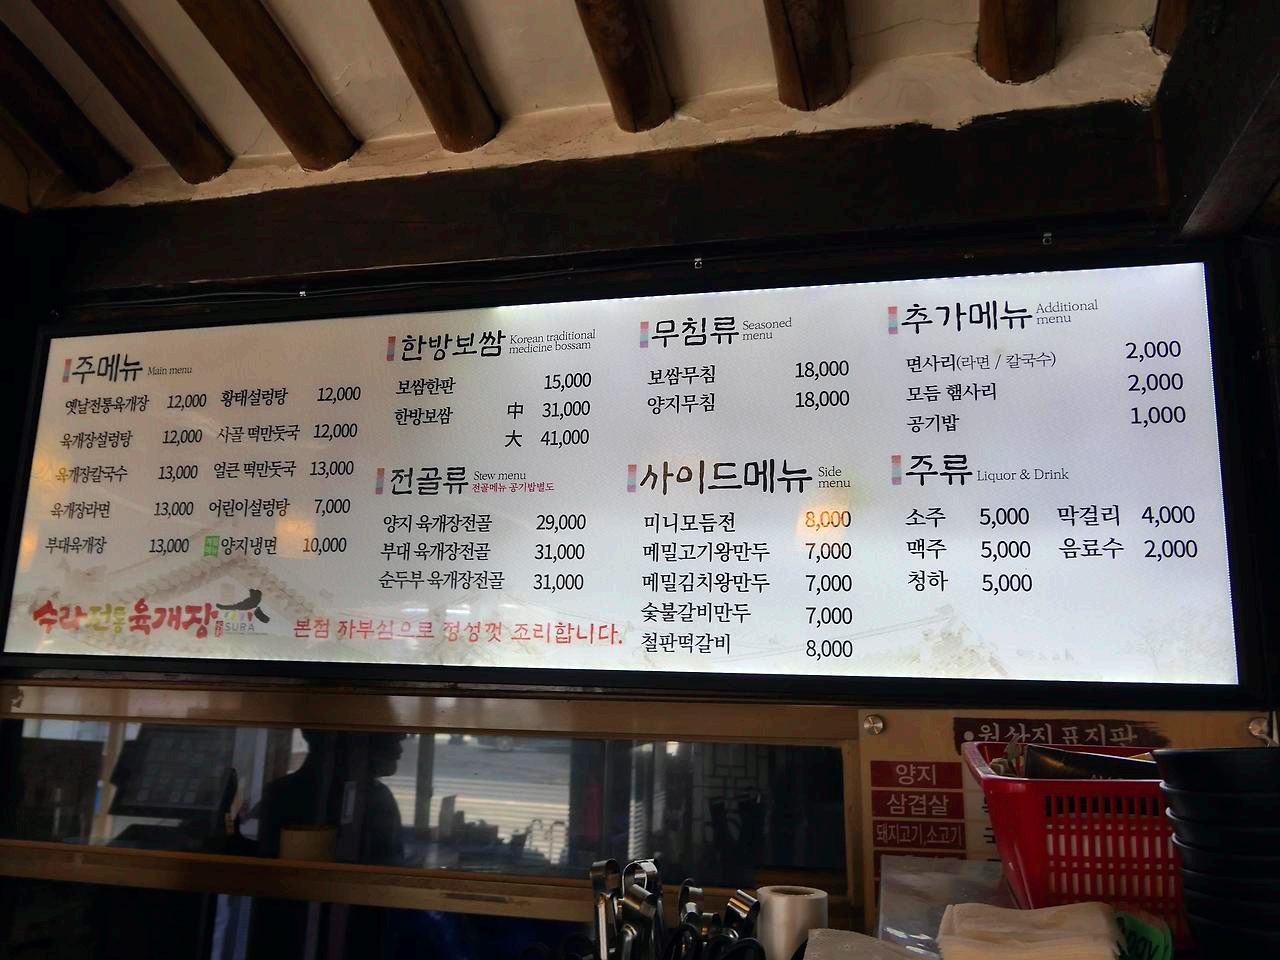 주메뉴 Main menu
옛날전통육개장 12,000 황태설렁탕 12,000
육개장설렁탕 12,000 사골 떡만둣국 12,000
육개장칼국수 13,000 얼큰 떡만둣국 13,000
육개장라면 13,000 어린이설렁탕 7,000
부대육개장 13,000 양지냉면 10,000
한방보쌈 Korean traditional
medicine bossam
보쌈한판 15,000
한방보쌈 中 31,000
大 41,000
전골류 Stew menu
전골메뉴 공기밥별도
양지 육개장전골 29,000
부대 육개장전골 31,000
순두부 육개장전골 31,000
무침류 Seasoned
menu
보쌈무침 18,000
양지무침 18,000
사이드메뉴 Side
menu
미니모듬전 8,000
메밀고기왕만두 7,000
메밀김치왕만두 7,000
숯불갈비만두 7,000
철판떡갈비 8,000
추가메뉴 Additional
menu
면사리(라면 / 칼국수) 2,000
모듬 햄사리 2,000
공기밥 1,000
주류 Liquor & Drink
소주 5,000 막걸리 4,000
맥주 5,000 음료수 2,000
청하 5,000
수라전통육개장 SURA
본점 자부심으로 정성껏 조리합니다.
원산지표지판
양지
삼겹살
돼지고기,소고기